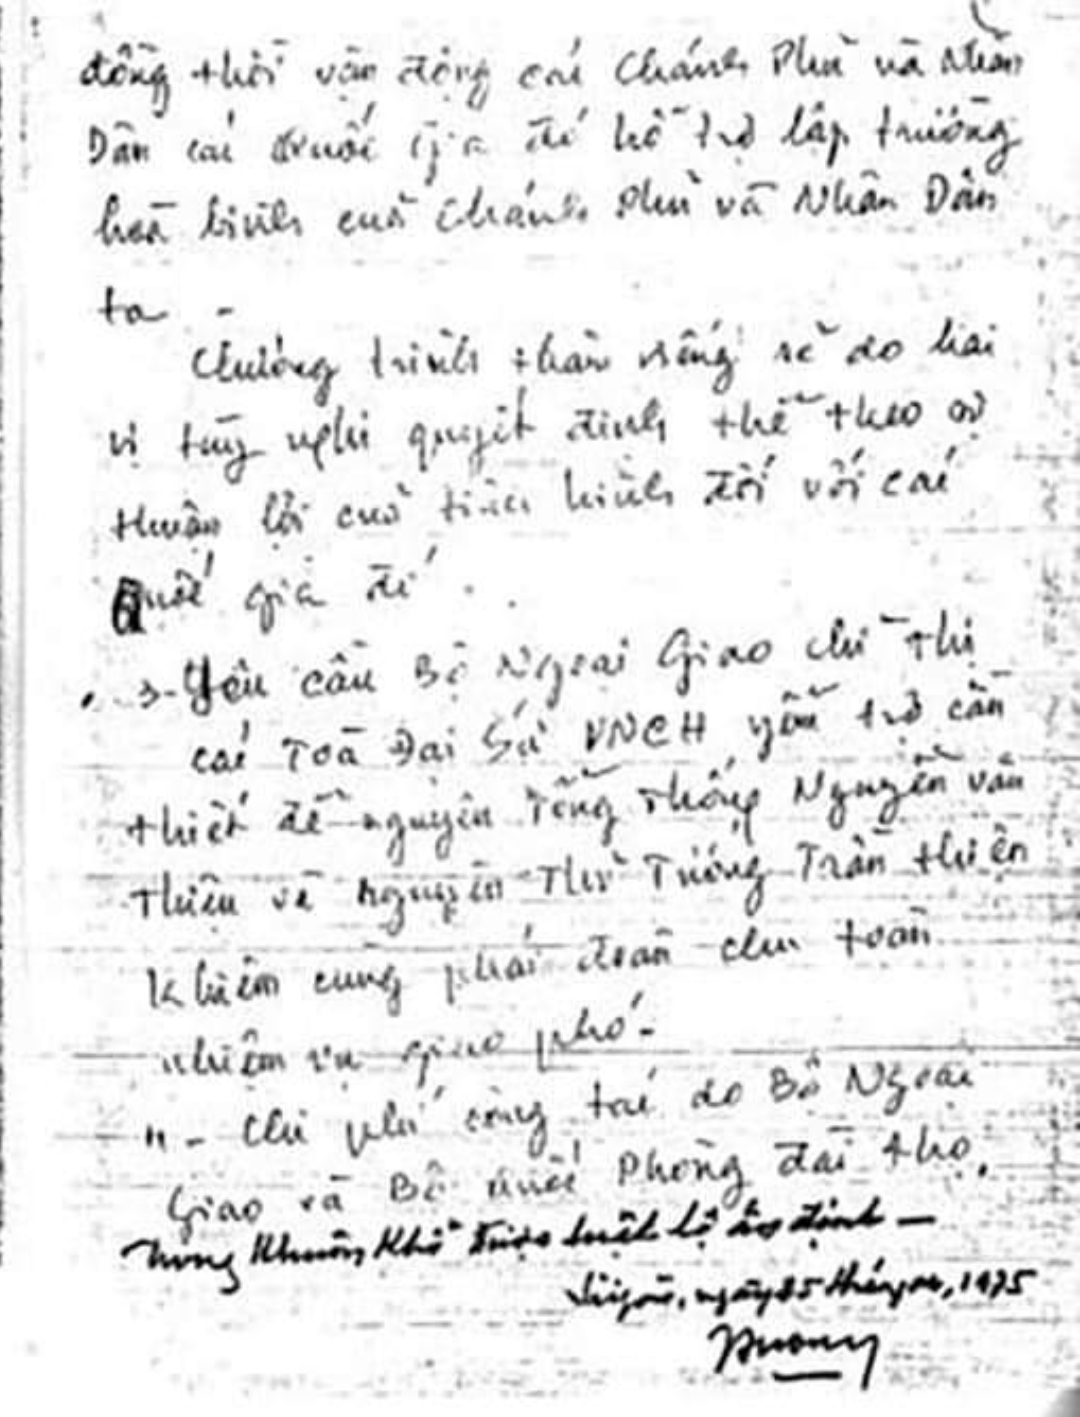 đồng thời vận động các Chánh Phủ và Nhân
Dân các Quốc Gia đó hỗ trợ lập trường
hoà bình của Chánh Phủ và Nhân Dân
ta -
Chương trình thăm viếng sẽ do hai
vị tùy nghi quyết định thể theo sự
thuận lợi của tình hình đối với các
Quốc gia đó.
3- Yêu cầu Bộ Ngoại Giao chỉ thị
các Toà Đại Sứ VNCH yểm trợ cần
thiết để nguyên Tổng Thống Nguyễn văn
Thiệu và nguyên Thủ Tướng Trần thiện
Khiêm cùng phái đoàn chu toàn
nhiệm vụ giao phó.-
4- Chi phí công tác do Bộ Ngoại
Giao và Bộ Quốc Phòng đài thọ,
trong khuôn khổ được luật lệ ấn định —
Sàigòn, ngày 25 tháng 04, 1975
Hương